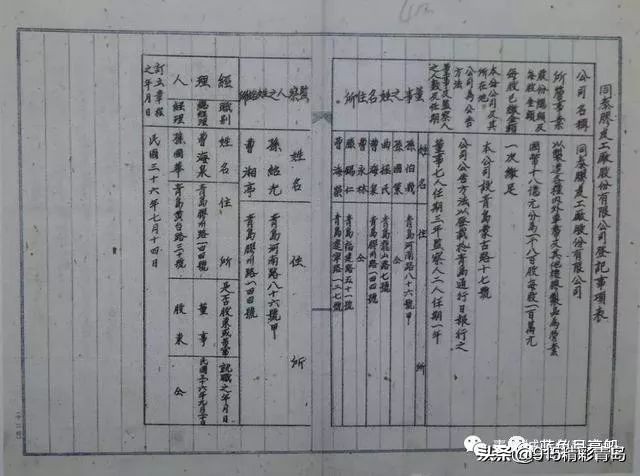 同泰膠皮工廠股份有限公司登記事項表
公司名稱 同泰膠皮工廠股份有限公司
所營事業 以製造各種內外車帶及其他橡膠製品為營業
股份總額及每股金額 國幣十八億元分為一千八百股每股一百萬元
每股已繳金額 一次繳足
本公司及其所在地 本公司設青島蒙古路十七號
公司為公告方法 公司公告方法以登載於青島通行日報行之
董事及監察人之人數及任期 董事七人任期三年監察人二人任期一年
董事之姓名住所 姓名 住所
孫伯義 青島河南路八十六號甲
孫國棻 仝
曹海泉 青島膠州路一四四號
曲 氏 青島龍山路七號
曹永林 青島膠州路一四四號
孫錫仁 青島福建路五十一號
曹海 青島遼寧路一二七號
監察人之姓名住所 姓名 住所
孫紹光 青島河南路八十六號甲
曹湘亭 青島膠州路一四四號
經理人 職別 姓名 住所 是否股東或董事 就職之年月日
總經理 曹海泉 青島膠州路一四四號 董事 民國三十六年九月二十日
經理 孫國華 青島黃台路三十號 股東 仝
訂立章程之年月日 民國三十六年七月十四日
青島城藍色貝壹船
头条@915精彩青岛